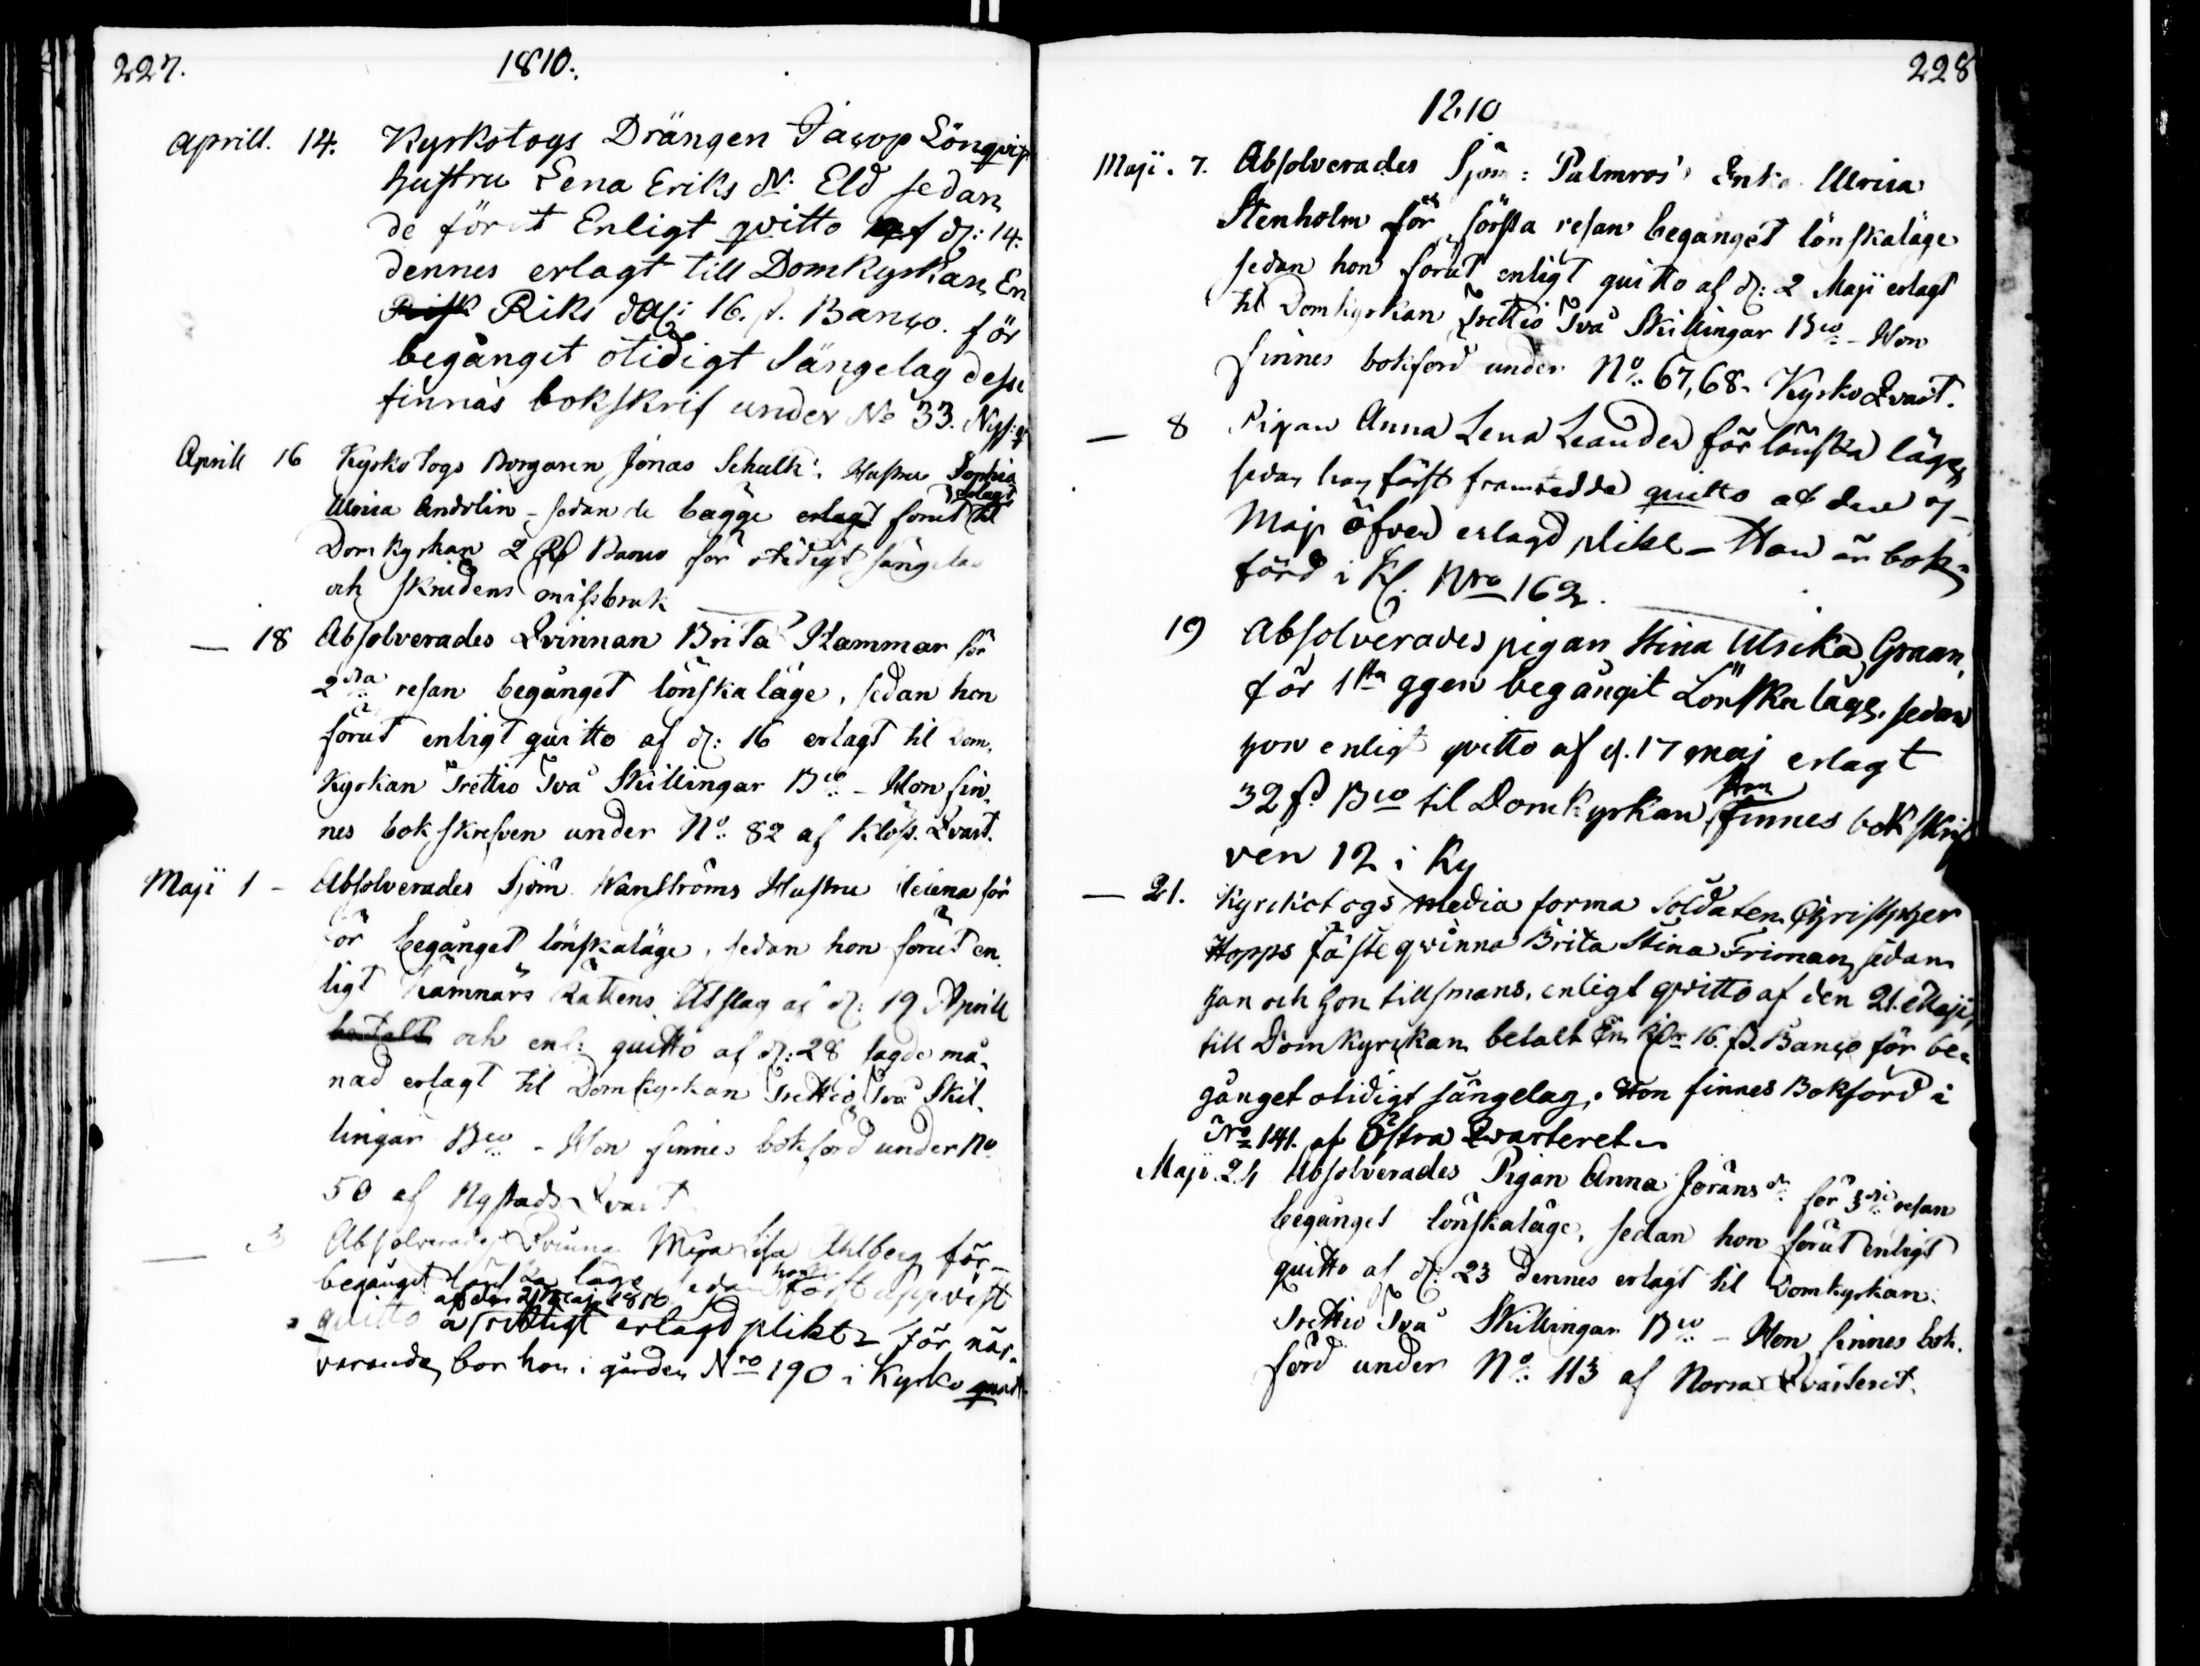 227.
1810.
Aprill. 14. Kyrkotogs Drängen Jacop Lönqvis
hustru Lena Eriks dr. Eld sedan
de förut Enligt qvitto af d: 14.
dennes erlagt till Domkyrkan En
Riks d: 16. s. Banco. för
begånget otidigt Sängelag desse
finnas bokskrif under No 33. Nys: q
Aprill 16 Kyrkotogs Borgaren Jonas Schultz Hustru Sophia
Ulrica Andelin - sedan de bägge förut erlagt til
Domkyrkan 2 Rd Banco för otidigt sängelag
och skrudens missbruk
— 18 Absolverades Qvinnan Brita Hammar för
2dra resan begånget lönskaläge, sedan hon
förut enligt quitto af d: 16 erlagt til Dom,
Kyrkan Trettio Två Skillingar Bco - Hon fin,
nes bokskrefven under No. 82 af Klos. Qvart.
Maji 1 - Absolverades Sjöm. Wanströms Hustru Helena för
för begånget lönskaläge, sedan hon förut en,
ligt Kämnärs Rättens Utslag af d: 19 Aprill
betalt och enl: quitto af d: 28 sagde må,
nad erlagt til Domkyrkan Trettio Två Skil,
lingar Bco - Hon finnes bokförd under No
50 af Nystads Qvart
— 3 Absolverades Qvinna Maja Lisa Ahlberg för
begånget lönska läge sedan hon först uppvist
quitto af den 2 Maji 1810
å riktigt erlagd plikt - För när,
varande bor hon i gården Nro 190 i Kyrko qvart.
228
1810
Maji. 7. Absolverades Sjöm: Palmros' Enka Ulrica
Stenholm för första resan begånget lönskaläge
sedan hon förut enligt quitto af d: 2 Maji erlagt
til Domkyrkan Trettio Två Skillingar Bco - Hon
finnes bokförd under No. 67,68. Kyrko Qvart.
— 8 Pigan Anna Lena Leander för lönska läge
sedan hon först framtedde quitto af den 7
Maji öfver erlagd plikt - Hon är bok=
förd i Kl. Nro 162.
19 Absolverades pigan Stina Ulrika Graan,
för 1sta ggen begångit Lönska läge, sedan
hon enligt qvitto af d. 17 maj erlagt
32 s. Bco til Domkyrkan, Hon finnes bok skrif
ven 12 i Ky
— 21. Kyrckotogs media forma Soldaten Christopher
Hopps fästeqvinna Brita Stina Friman, sedan
han och hon tillsmans, enligt qvitto af den 21. Maji,
till Domkyrckan betalt En Rdr 16. s. Banco för be=
gånget otidigt sängelag. Hon finnes Bokförd i
No 141. af Östra Qvarteret.
Maji. 24 Absolverades Pigan Anna Jörans dr för 3dje resan
begånget lönskaläge, sedan hon förut enligt
quitto af d: 23 dennes erlagt til Domkyrkan
Trettio Två Skillingar Bco - Hon finnes bok,
förd under No. 113 af Norra Qvarteret.